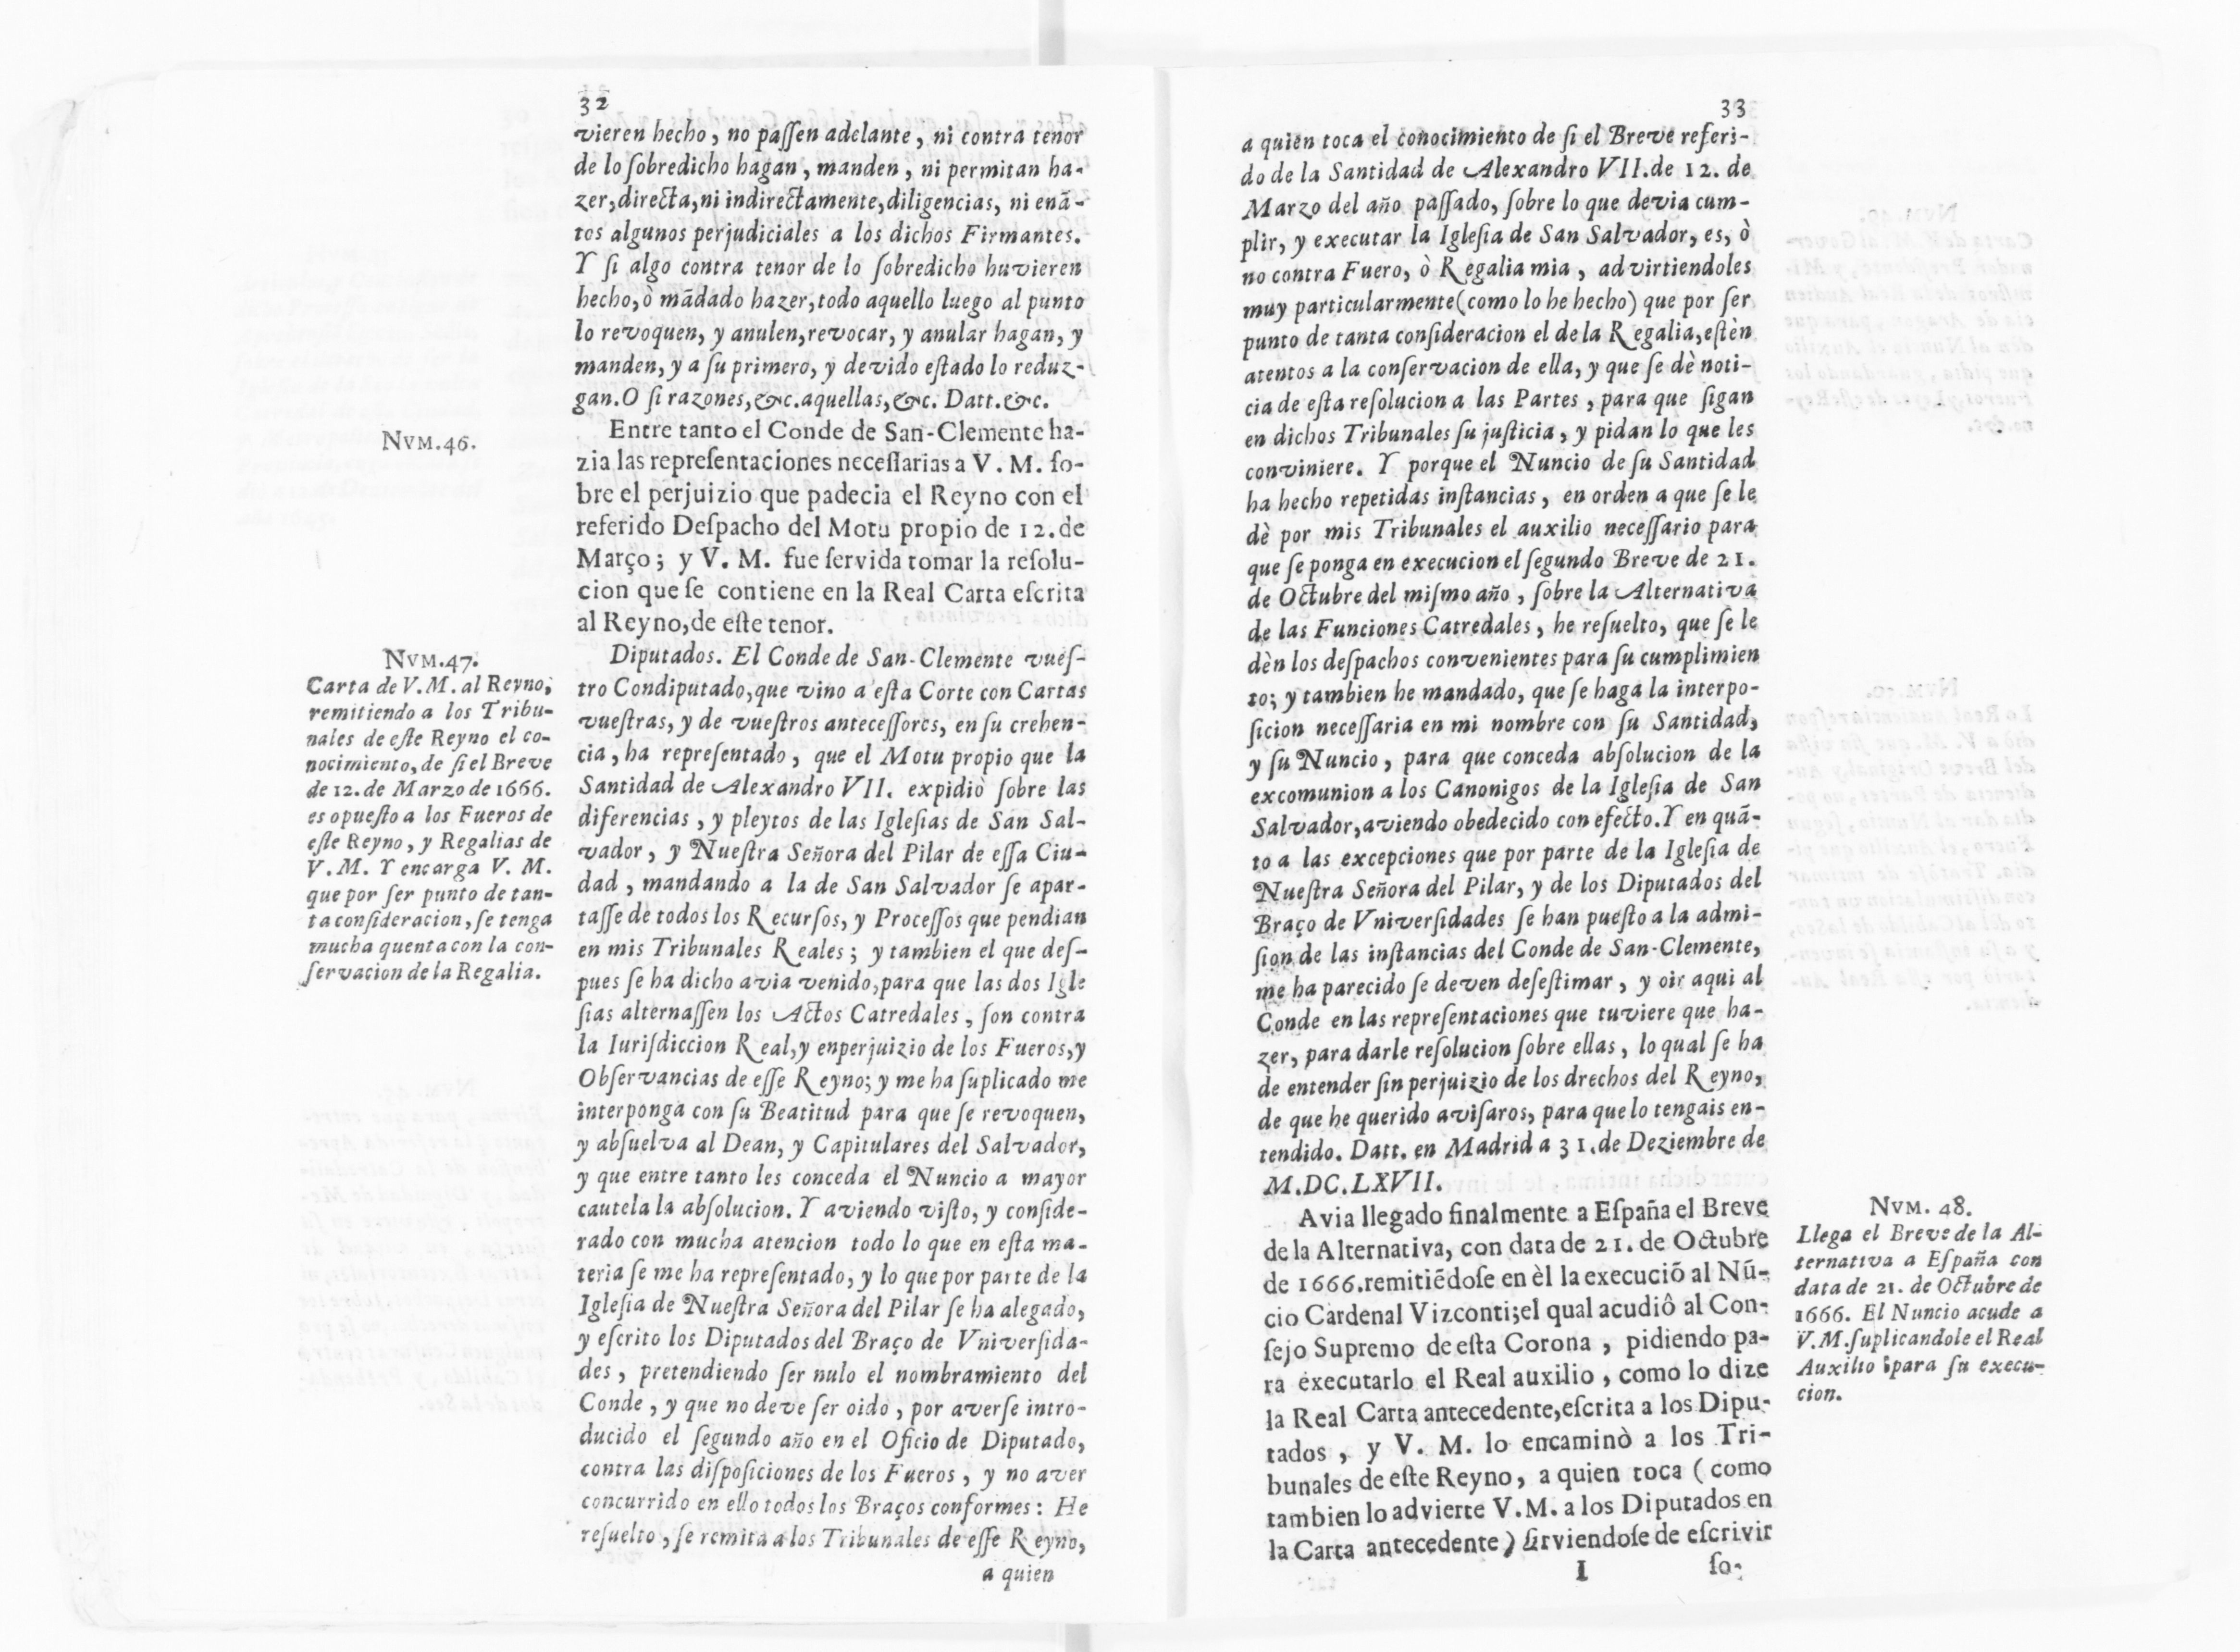 32
vieren hecho, no paſſen adelante, ni contra tenor
de lo ſobredicho hagan, manden, ni permitan ha-
zer, directa, ni indirectamente, diligencias, ni enā-
tos algunos perjudiciales a los dichos Firmantes.
Y ſi algo contra tenor de lo ſobredicho huvieren
hecho, ò mādado hazer, todo aquello luego al punto
lo revoquen, y anulen, revocar, y anular hagan, y
manden, y a ſu primero, y devido eſtado lo reduz-
gan. O ſi razones, &c. aquellas, &c. Datt. &c.
NVM. 46.
Entre tanto el Conde de San-Clemente ha-
zia las repreſentaciones neceſſarias a V. M. ſo-
bre el perjuizio que padecia el Reyno con el
referido Deſpacho del Motu propio de 12. de
Março; y V. M. fue ſervida tomar la reſolu-
cion que ſe contiene en la Real Carta eſcrita
al Reyno, de eſte tenor.
NVM. 47.
Carta de V. M. al Reyno,
remitiendo a los Tribu-
nales de eſte Reyno el co-
nocimiento, de ſi el Breve
de 12. de Marzo de 1666.
es opueſto a los Fueros de
eſte Reyno, y Regalias de
V. M. Y encarga V. M.
que por ſer punto de tan-
ta conſideracion, ſe tenga
mucha quenta con la con-
ſervacion de la Regalia.
Diputados. El Conde de San-Clemente vueſ-
tro Condiputado, que vino a eſta Corte con Cartas
vueſtras, y de vueſtros anteceſſores, en ſu crehen-
cia, ha repreſentado, que el Motu propio que la
Santidad de Alexandro VII. expidiò ſobre las
diferencias, y pleytos de las Igleſias de San Sal-
vador, y Nueſtra Señora del Pilar de eſſa Ciu-
dad, mandando a la de San Salvador ſe apar-
taſſe de todos los Recurſos, y Proceſſos que pendian
en mis Tribunales Reales; y tambien el que deſ-
pues ſe ha dicho avia venido, para que las dos Igle
ſias alternaſſen los Actos Catredales, ſon contra
la Iuriſdiccion Real, y enperjuizio de los Fueros, y
Obſervancias de eſſe Reyno; y me ha ſuplicado me
interponga con ſu Beatitud para que ſe revoquen,
y abſuelva al Dean, y Capitulares del Salvador,
y que entre tanto les conceda el Nuncio a mayor
cautela la abſolucion. Y aviendo viſto, y conſide-
rado con mucha atencion todo lo que en eſta ma-
teria ſe me ha repreſentado, y lo que por parte de la
Igleſia de Nueſtra Señora del Pilar ſe ha alegado,
y eſcrito los Diputados del Braço de Vniverſida-
des, pretendiendo ſer nulo el nombramiento del
Conde, y que no deve ſer oido, por averſe intro-
ducido el ſegundo año en el Oficio de Diputado,
contra las diſpoſiciones de los Fueros, y no aver
concurrido en ello todos los Braços conformes: He
reſuelto, ſe remita a los Tribunales de eſſe Reyno,
a quien
33
a quien toca el conocimiento de ſi el Breve referi-
do de la Santidad de Alexandro VII. de 12. de
Marzo del año paſſado, ſobre lo que devia cum-
plir, y executar la Igleſia de San Salvador, es, ò
no contra Fuero, ò Regalia mia, advirtiendoles
muy particularmente (como lo he hecho) que por ſer
punto de tanta conſideracion el de la Regalia, eſtèn
atentos a la conſervacion de ella, y que ſe dè noti-
cia de eſta reſolucion a las Partes, para que ſigan
en dichos Tribunales ſu juſticia, y pidan lo que les
conviniere. Y porque el Nuncio de ſu Santidad
ha hecho repetidas inſtancias, en orden a que ſe le
dè por mis Tribunales el auxilio neceſſario para
que ſe ponga en execucion el ſegundo Breve de 21.
de Octubre del miſmo año, ſobre la Alternativa
de las Funciones Catredales, he reſuelto, que ſe le
dèn los deſpachos convenientes para ſu cumplimien
to; y tambien he mandado, que ſe haga la interpo-
ſicion neceſſaria en mi nombre con ſu Santidad,
y ſu Nuncio, para que conceda abſolucion de la
excomunion a los Canonigos de la Igleſia de San
Salvador, aviendo obedecido con efecto. Y en quā-
to a las excepciones que por parte de la Igleſia de
Nueſtra Señora del Pilar, y de los Diputados del
Braço de Vniverſidades ſe han pueſto a la admi-
ſion de las inſtancias del Conde de San-Clemente,
me ha parecido ſe deven deſeſtimar, y oir aqui al
Conde en las repreſentaciones que tuviere que ha-
zer, para darle reſolucion ſobre ellas, lo qual ſe ha
de entender ſin perjuizio de los drechos del Reyno,
de que he querido aviſaros, para que lo tengais en-
tendido. Datt. en Madrid a 31. de Deziembre de
M.DC.LXVII.
Avia llegado finalmente a Eſpaña el Breve
de la Alternativa, con data de 21. de Octubre
de 1666. remitiēdoſe en èl la execuciō al Nū-
cio Cardenal Vizconti; el qual acudiô al Con-
ſejo Supremo de eſta Corona, pidiendo pa-
ra executarlo el Real auxilio, como lo dize
la Real Carta antecedente, eſcrita a los Dipu-
tados, y V. M. lo encaminò a los Tri-
bunales de eſte Reyno, a quien toca (como
tambien lo advierte V. M. a los Diputados en
la Carta antecedente) ſirviendoſe de eſcrivir
I
ſo-
NVM. 48.
Llega el Breve de la Al-
ternativa a Eſpaña con
data de 21. de Octubre de
1666. El Nuncio acude a
V. M. ſuplicandole el Real
Auxilio para ſu execu-
cion.